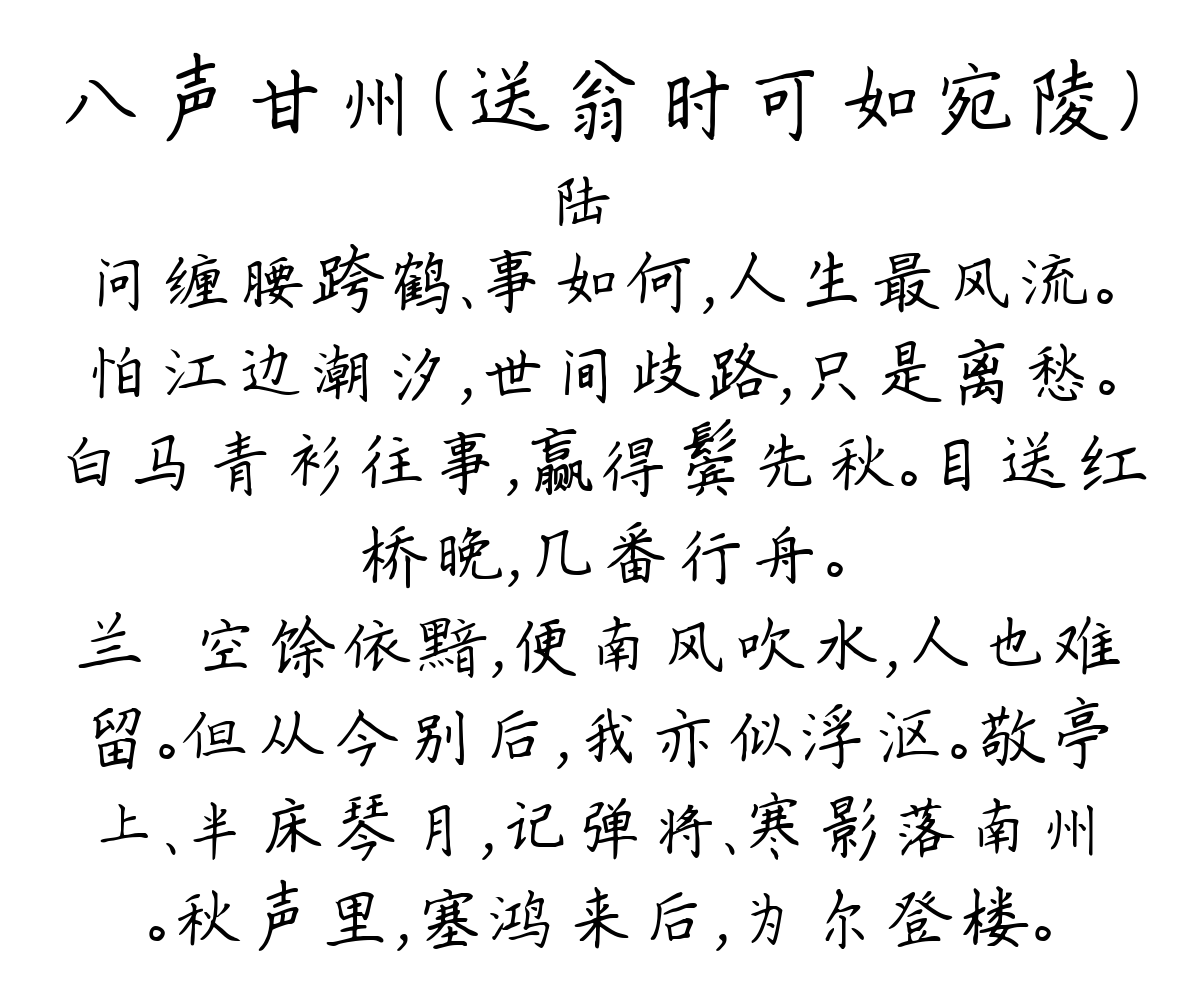 八声甘州(送翁时可如宛陵)
陆
问缠腰跨鹤、事如何,人生最风流。
怕江边潮汐,世间歧路,只是离愁。
白马青衫往事,赢得鬓先秋。目送红
桥晚,几番行舟。
兰 空馀依黯,便南风吹水,人也难
留。但从今别后,我亦似浮沤。敬亭
上、半床琴月,记弹将、寒影落南州
。秋声里,塞鸿来后,为尔登楼。